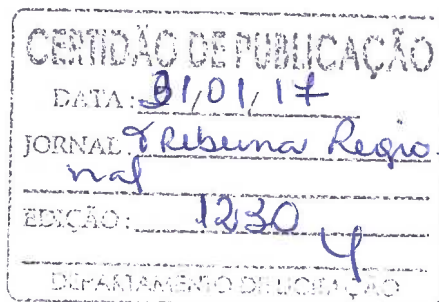 CERTIDÃO DE PUBLICAÇÃO
DATA: 31/01/17
JORNAL Tribuna Regio
nal
EDIÇÃO: 1230
DEPARTAMENTO DE LICITAÇÃO